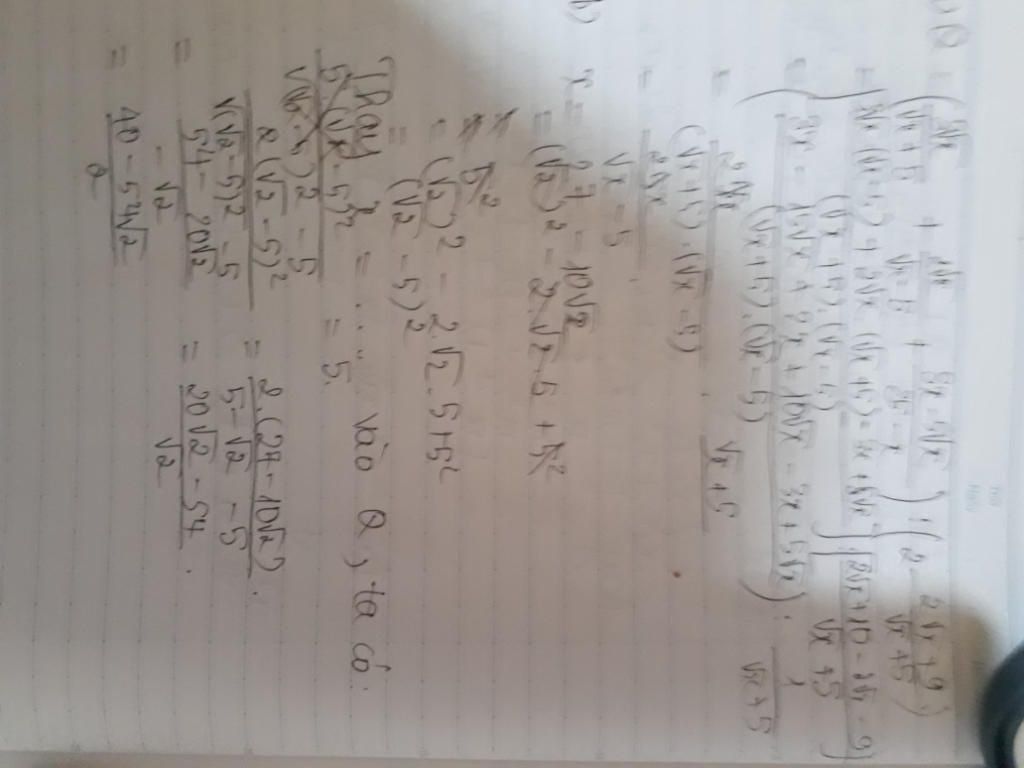 Q = (3√x/(√x+5) + 2√x/(√x-5) + (3x-5√x)/(25-x)) : (2 - (2√x+9)/(√x+5))
= [(3√x(√x-5) + 2√x(√x+5) - 3x+5√x)/((√x+5).(√x-5))] : [(2√x+10-2√x-9)/(√x+5)]
= ((3x - 15√x + 2x + 10√x - 3x + 5√x)/((√x+5).(√x-5))) : 1/(√x+5)
= 2x/((√x+5).(√x-5)) . (√x+5)
= 2x/(√x-5)
b)
x = 27 - 10√2
= (√2)² - 2.√2.5 + 5²
= (√2)² - 2.√2.5+5²
= (√2 - 5)²
Thay x = .... vào Q, ta có:
= 5.
2.(√2-5)²/(√(√2-5)² - 5) = 2.(27-10√2)/(5-√2-5).
= (54-20√2)/(-√2) = (20√2-54)/√2.
= (40-54√2)/2